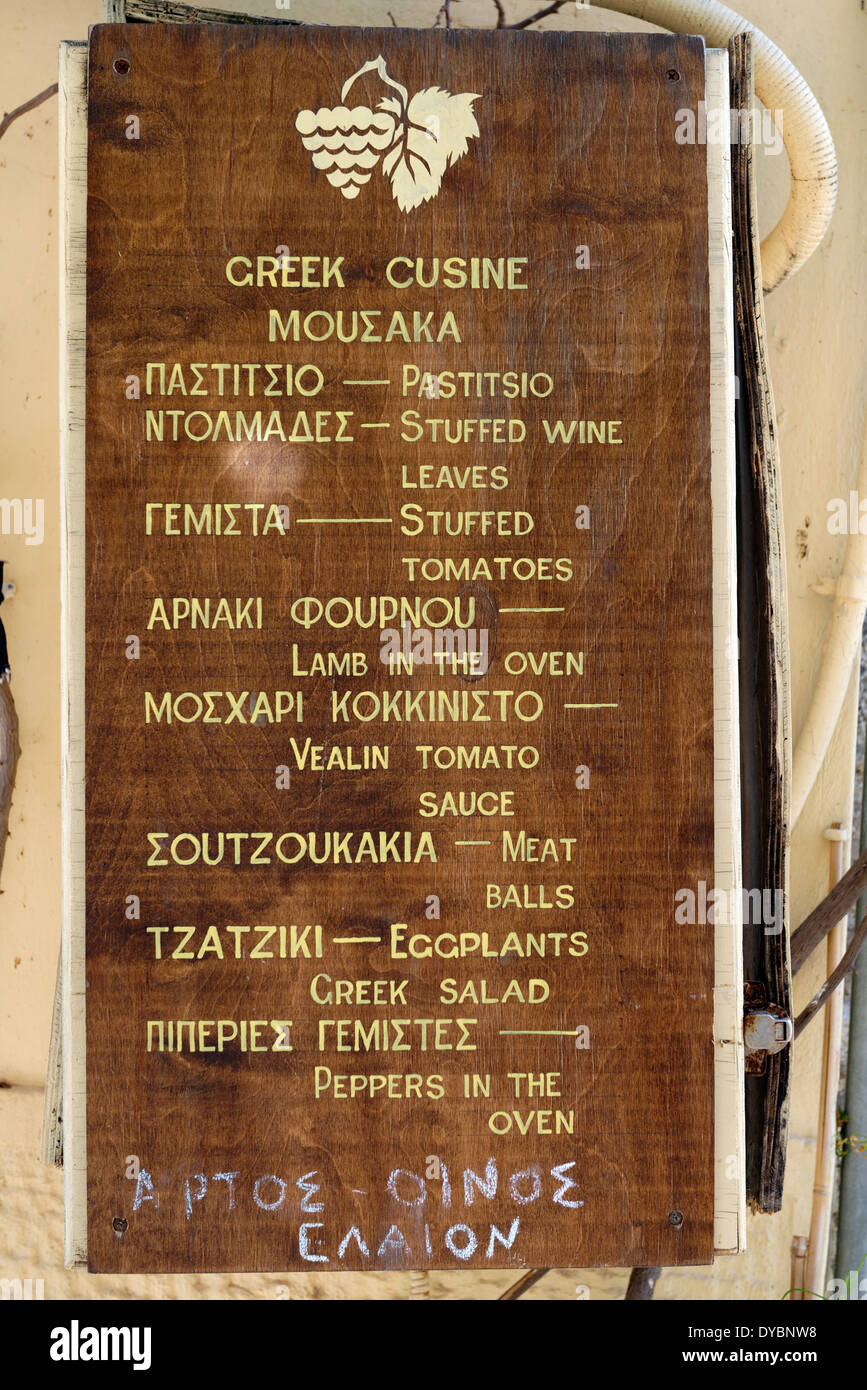 GREEK CUSINE
ΜΟUΣΑΚΑ
ΠΑΣΤΙΤΣΙΟ — PASTITSIO
ΝΤΟΛΜΑΔΕΣ — STUFFED WINE
LEAVES
ΓΕΜΙΣΤΑ — STUFFED
TOMATOES
ΑΡΝΑΚΙ ΦΟUΡΝΟU —
LAMB IN THE OVEN
ΜΟΣΧΑΡΙ ΚΟΚΚΙΝΙΣΤΟ —
VEALIN TOMATO
SAUCE
ΣΟUΤΖΟUΚΑΚΙΑ — MEAT
BALLS
ΤΖΑΤΖΙΚΙ — EGGPLANTS
GREEK SALAD
ΠΙΠΕΡΙΕΣ ΓΕΜΙΣΤΕΣ —
PEPPERS IN THE
OVEN
ΑΡΤΟΣ - ΟΙΝΟΣ
ΕΛΑΙΟΝ
alamy
alamy
Image ID: DYBNW8
www.alamy.com